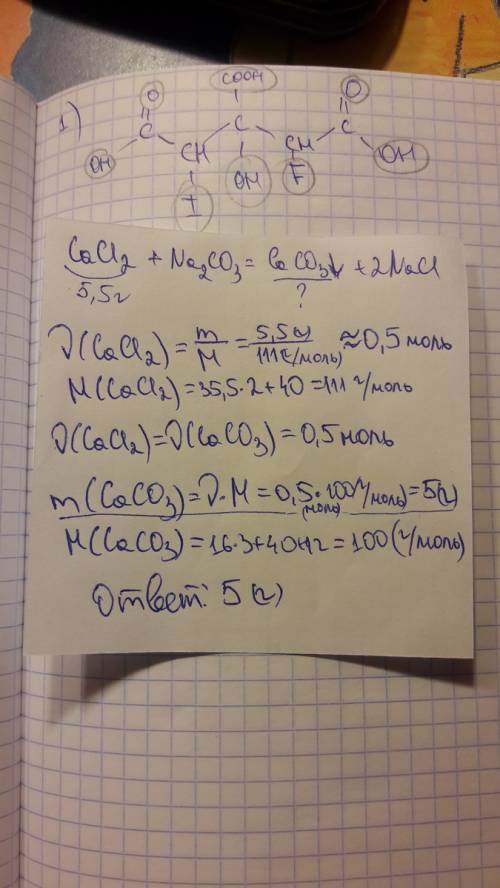 1)
COOH
O O
C C C
OH CH CH OH
I OH F
CaCl₂ + Na₂CO₃ = CaCO₃↓ + 2NaCl
5,5г ?
ν(CaCl₂) = m/M = 5,5(г)/111(г/моль) ≈ 0,5 моль
M(CaCl₂) = 35,5·2+40 = 111 г/моль
ν(CaCl₂) = ν(CaCO₃) = 0,5 моль
m(CaCO₃) = ν·M = 0,5(моль)·100(г/моль) = 5(г)
M(CaCO₃) = 16·3+40+12 = 100(г/моль)
Ответ: 5(г)